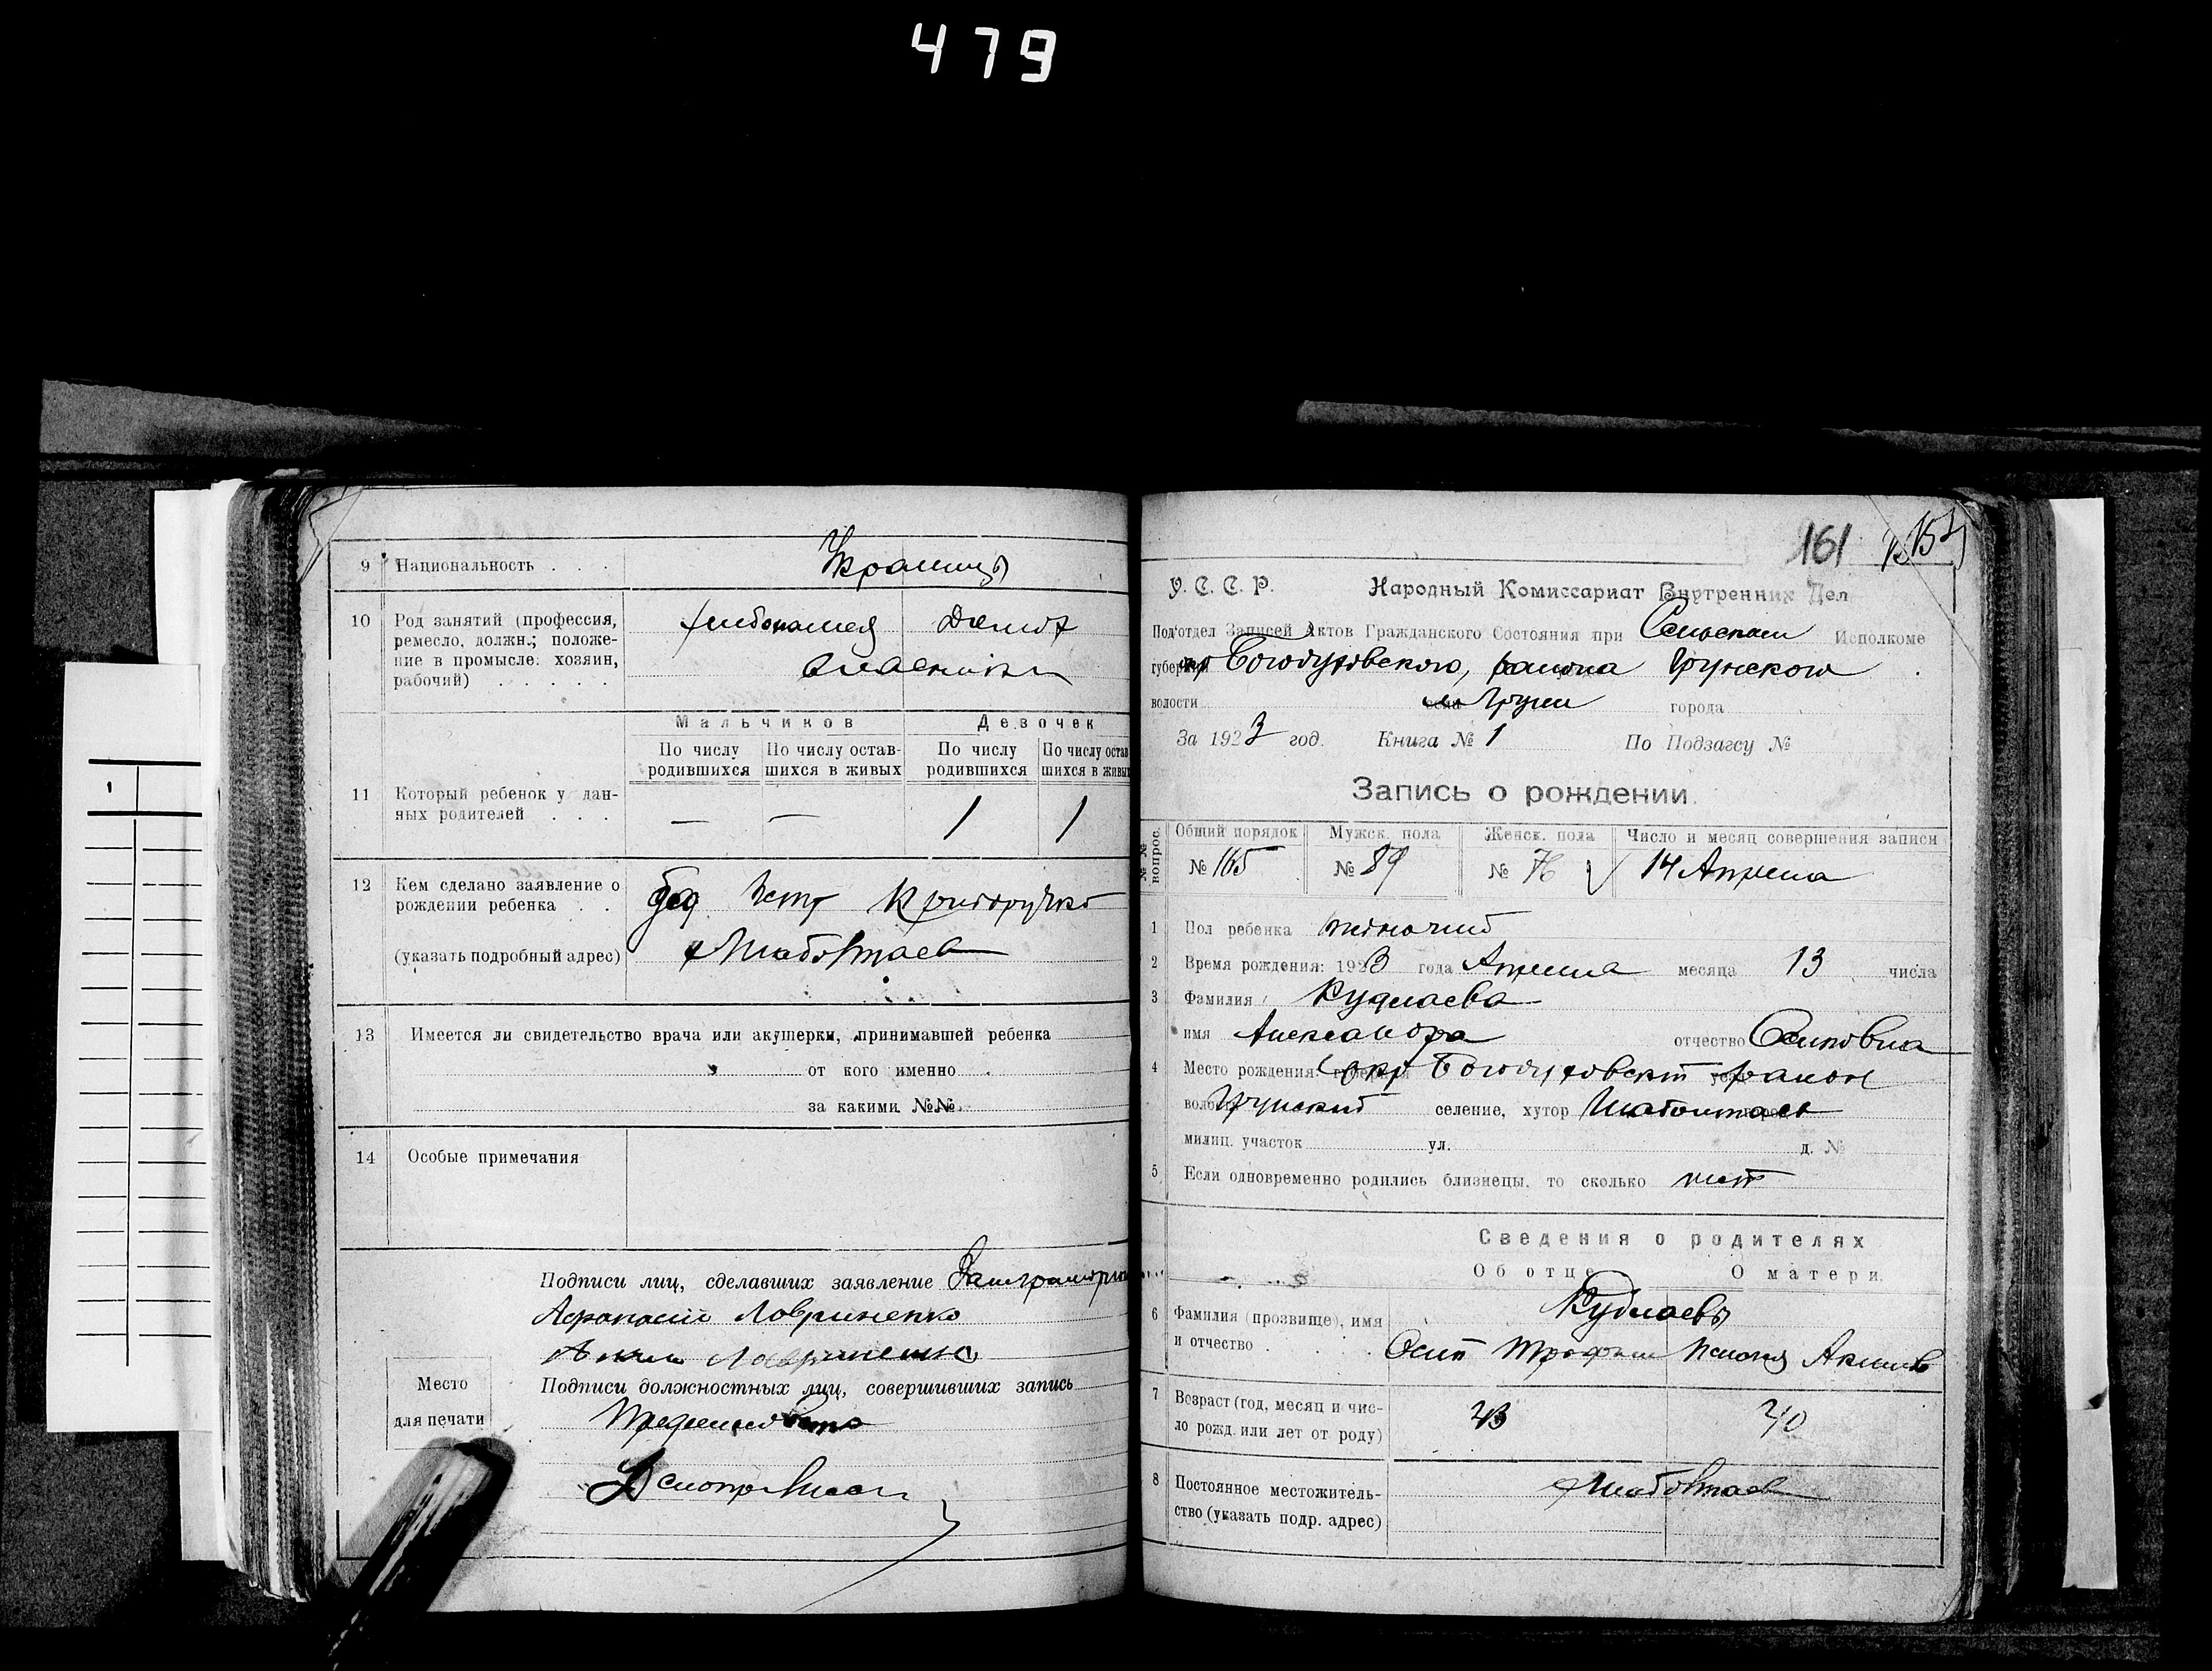 479
9 Национальность . . . Украинцы
10 Род занятий (профессия,
ремесло, должн.; положе-
ние в промысле: хозяин,
рабочий) . . . . .
Мальчиков Девочек
По числу родившихся По числу остав-шихся в живых По числу родившихся По числу остав шихся в живых
11 Который ребенок у дан-
ных родителей . . . — — 1 1
12 Кем сделано заявление о
рождении ребенка . .
(указать подробный адрес)
13 Имеется ли свидетельство врача или акушерки, принимавшей ребенка
от кого именно
за какими №№
14 Особые примечания
Подписи лиц, сделавших заявление
Афанасій Лавриненко
Лавриненко
Место
для печати
Подписи должностных лиц, совершивших запись
161
У. С. С. Р. Народный Комиссариат Внутренних Дел
Под'отдел Записей Актов Гражданского Состояния при Сельском Исполкоме
губернии окр Богодуховского, района Грунского
волости села м Груни города
За 1923 год. Книга № 1 По Подзагсу №
Запись о рождении.
№№ вопрос. Общий порядок Мужск. пола Женск. пола Число и месяц совершения записи
№ 165 № 89 № 76 14 Апреля
1 Пол ребенка женский
2 Время рождения: 1923 года Апреля месяца 13 числа
3 Фамилия Кудлаева
имя Александра отчество Осиповна
4 Место рождения: окр Богодуховский район
волость Грунский селение, хутор
милиц. участок ул. д. №
5 Если одновременно родились близнецы, то сколько нет
Сведения о родителях
Об отце О матери.
Кудлаевы
6 Фамилия (прозвище), имя
и отчество . . . . Осип Трофим
7 Возраст (год, месяц и чис-
ло рожд. или лет от роду) 43 40
8 Постоянное местожитель-
ство (указать подр. адрес)